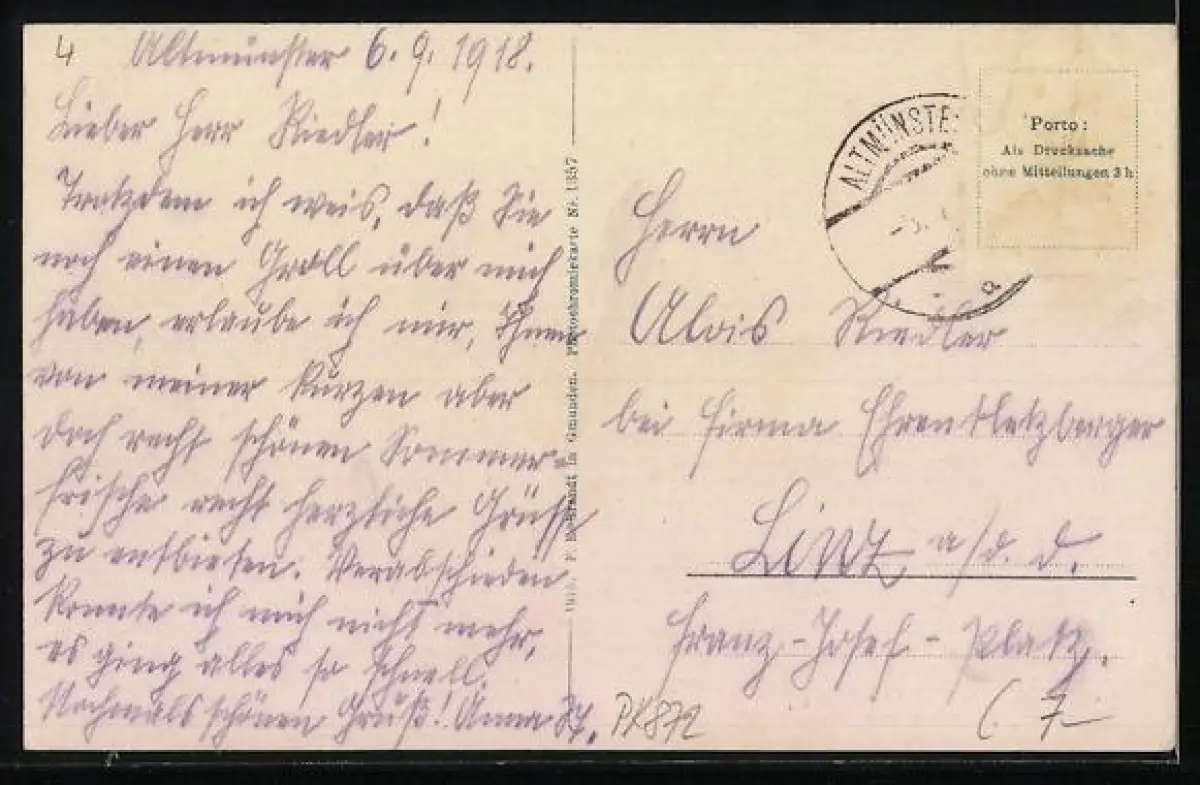 4 Altmünster 6. 9. 1918.
Lieber Herr Riedler!
Trotzdem ich weis, daß Sie
noch einen Groll über mich
haben, erlaube ich mir, Ihnen
von meiner kurzen aber
doch recht schönen Sommer-
frische recht herzliche Grüsse
zu entbieten. Verabschieden
konnte ich mich nicht mehr,
es ging alles so schnell.
Nochmals schönen Gruß! Anna St.
P. in Gmunden. Photochromiekarte Nr. 1357
ALTMÜNSTE
a
Porto:
Als Drucksache
ohne Mitteilungen 3 h
Herrn
Alois Riedler
bei Firma Ehrentletzberger
Linz a/d. D.
Franz-Josef-Platz.
PK872
7-